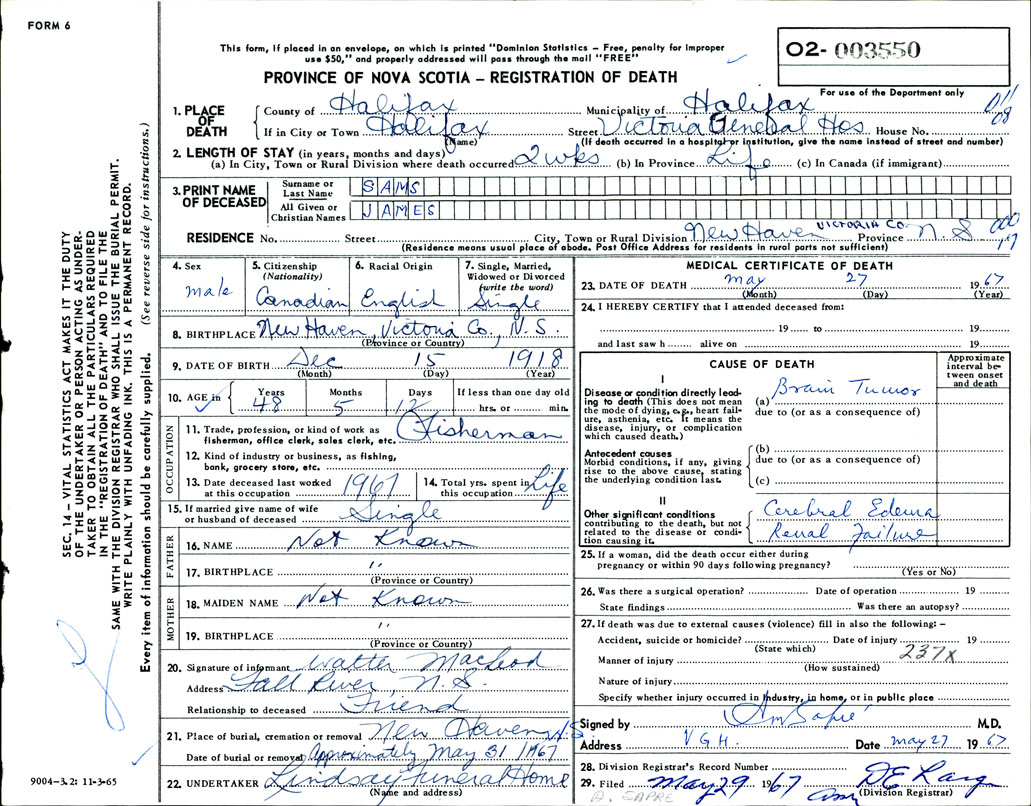 FORM 6
This form, if placed in an envelope, on which is printed "Dominion Statistics – Free, penalty for improper
use $50," and properly addressed will pass through the mail "FREE"
02- 003550
PROVINCE OF NOVA SCOTIA – REGISTRATION OF DEATH
For use of the Department only
011
08
1. PLACE OF DEATH
County of Halifax Municipality of Halifax
If in City or Town Halifax Street Victoria General Hos House No.
(Name) (If death occurred in a hospital or institution, give the name instead of street and number)
2. LENGTH OF STAY (in years, months and days)
(a) In City, Town or Rural Division where death occurred 2 wks (b) In Province Life (c) In Canada (if immigrant)
3. PRINT NAME OF DECEASED
Surname or Last Name SAMS
All Given or Christian Names JAMES
RESIDENCE No. Street City, Town or Rural Division New Haven VICTORIA CO. Province N. S
(Residence means usual place of abode. Post Office Address for residents in rural parts not sufficient)
4. Sex
male
5. Citizenship
(Nationality)
Canadian
6. Racial Origin
English
7. Single, Married,
Widowed or Divorced
(write the word)
Single
8. BIRTHPLACE New Haven, Victoria Co., N. S.
(Province or Country)
9. DATE OF BIRTH Dec 15 1918
(Month) (Day) (Year)
10. AGE in Years Months Days If less than one day old
48 5 12 hrs. or min.
OCCUPATION
11. Trade, profession, or kind of work as
fisherman, office clerk, sales clerk, etc. Fisherman
12. Kind of industry or business, as fishing,
bank, grocery store, etc.
13. Date deceased last worked
at this occupation 1967
14. Total yrs. spent in
this occupation Life
15. If married give name of wife
or husband of deceased Single
FATHER
16. NAME Not Known
17. BIRTHPLACE "
(Province or Country)
MOTHER
18. MAIDEN NAME Not Known
19. BIRTHPLACE "
(Province or Country)
20. Signature of informant Walter MacLeod
Address Fall River, N. S.
Relationship to deceased Friend
21. Place of burial, cremation or removal New Haven N.S
Date of burial or removal Approximately May 31/1967
22. UNDERTAKER Lindsay Funeral Home
(Name and address)
MEDICAL CERTIFICATE OF DEATH
23. DATE OF DEATH May 27 1967
(Month) (Day) (Year)
24. I HEREBY CERTIFY that I attended deceased from:
19 to 19
and last saw h alive on 19
CAUSE OF DEATH
Approximate
interval be-
tween onset
and death
I
Disease or condition directly lead-
ing to death (This does not mean
the mode of dying, e.g., heart fail-
ure, asthenia, etc. It means the
disease, injury, or complication
which caused death.)
(a) Brain Tumor
due to (or as a consequence of)
Antecedent causes
Morbid conditions, if any, giving
rise to the above cause, stating
the underlying condition last.
(b)
due to (or as a consequence of)
(c)
II
Other significant conditions
contributing to the death, but not
related to the disease or condi-
tion causing it.
Cerebral Edema
Renal Failure
25. If a woman, did the death occur either during
pregnancy or within 90 days following pregnancy?
(Yes or No)
26. Was there a surgical operation? Date of operation 19
State findings Was there an autopsy?
27. If death was due to external causes (violence) fill in also the following: –
Accident, suicide or homicide? Date of injury 19
(State which)
237X
Manner of injury
(How sustained)
Nature of injury
Specify whether injury occurred in industry, in home, or in public place
Signed by M.D.
Address V G H. Date May 27 1967
28. Division Registrar's Record Number
29. Filed May 29 1967
(Division Registrar)
D. SAPRE
SEC. 14 – VITAL STATISTICS ACT MAKES IT THE DUTY
OF THE UNDERTAKER OR PERSON ACTING AS UNDER-
TAKER TO OBTAIN ALL THE PARTICULARS REQUIRED
IN THE "REGISTRATION OF DEATH" AND TO FILE THE
SAME WITH THE DIVISION REGISTRAR WHO SHALL ISSUE THE BURIAL PERMIT.
WRITE PLAINLY WITH UNFADING INK. THIS IS A PERMANENT RECORD.
Every item of information should be carefully supplied. (See reverse side for instructions.)
9004-3.2: 11-3-65